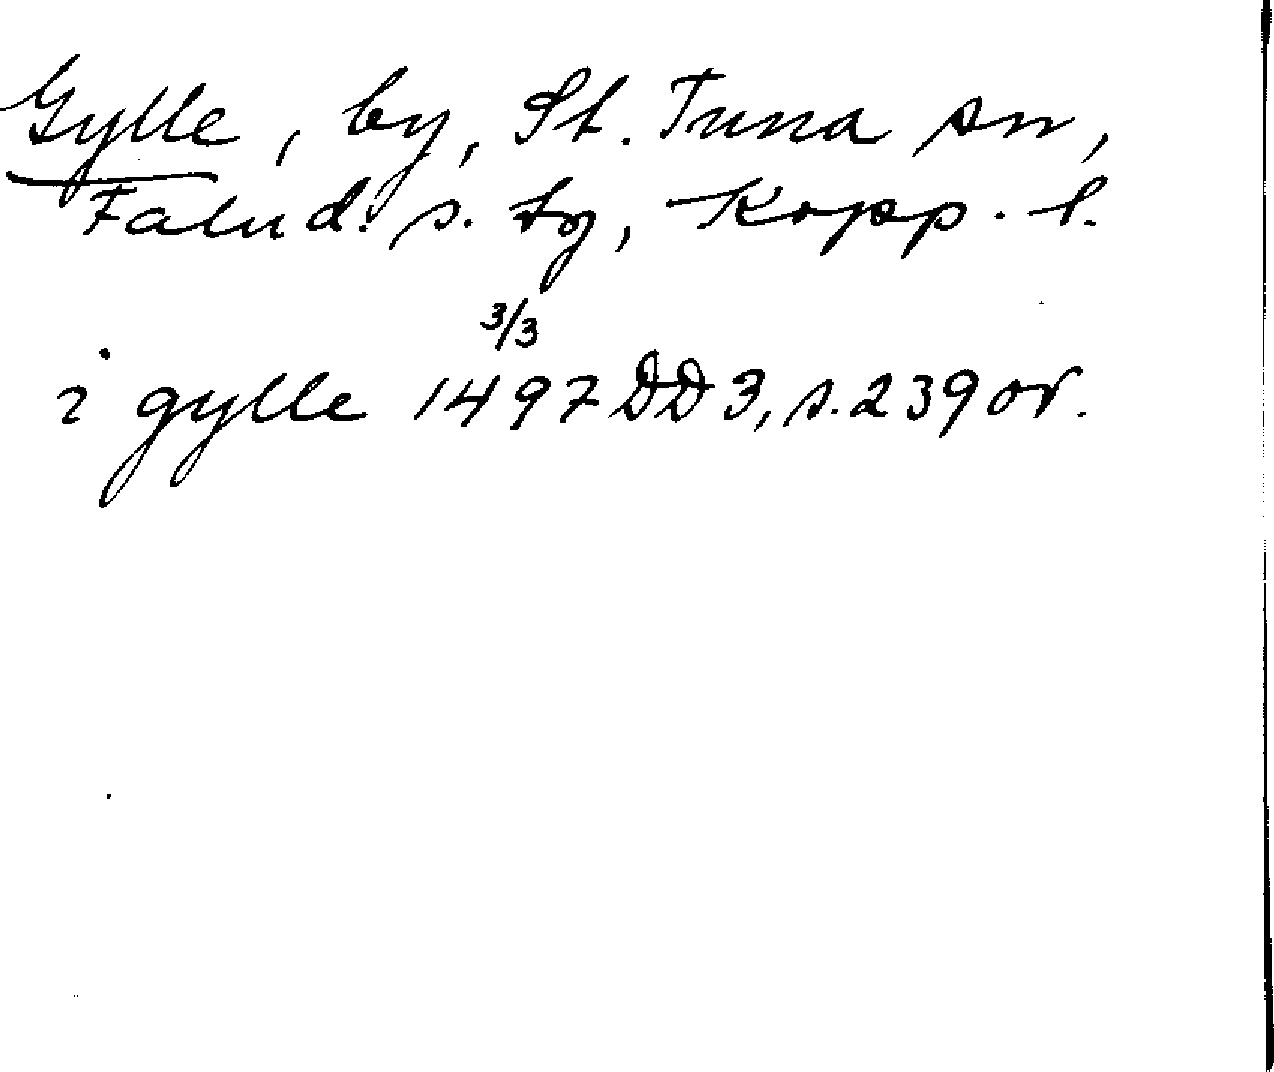 Gylle, by, St. Tuna sn,
Falud. s. tg, Kopp. l.
3/3
i gylle 1497 DD 3, s. 239 or.